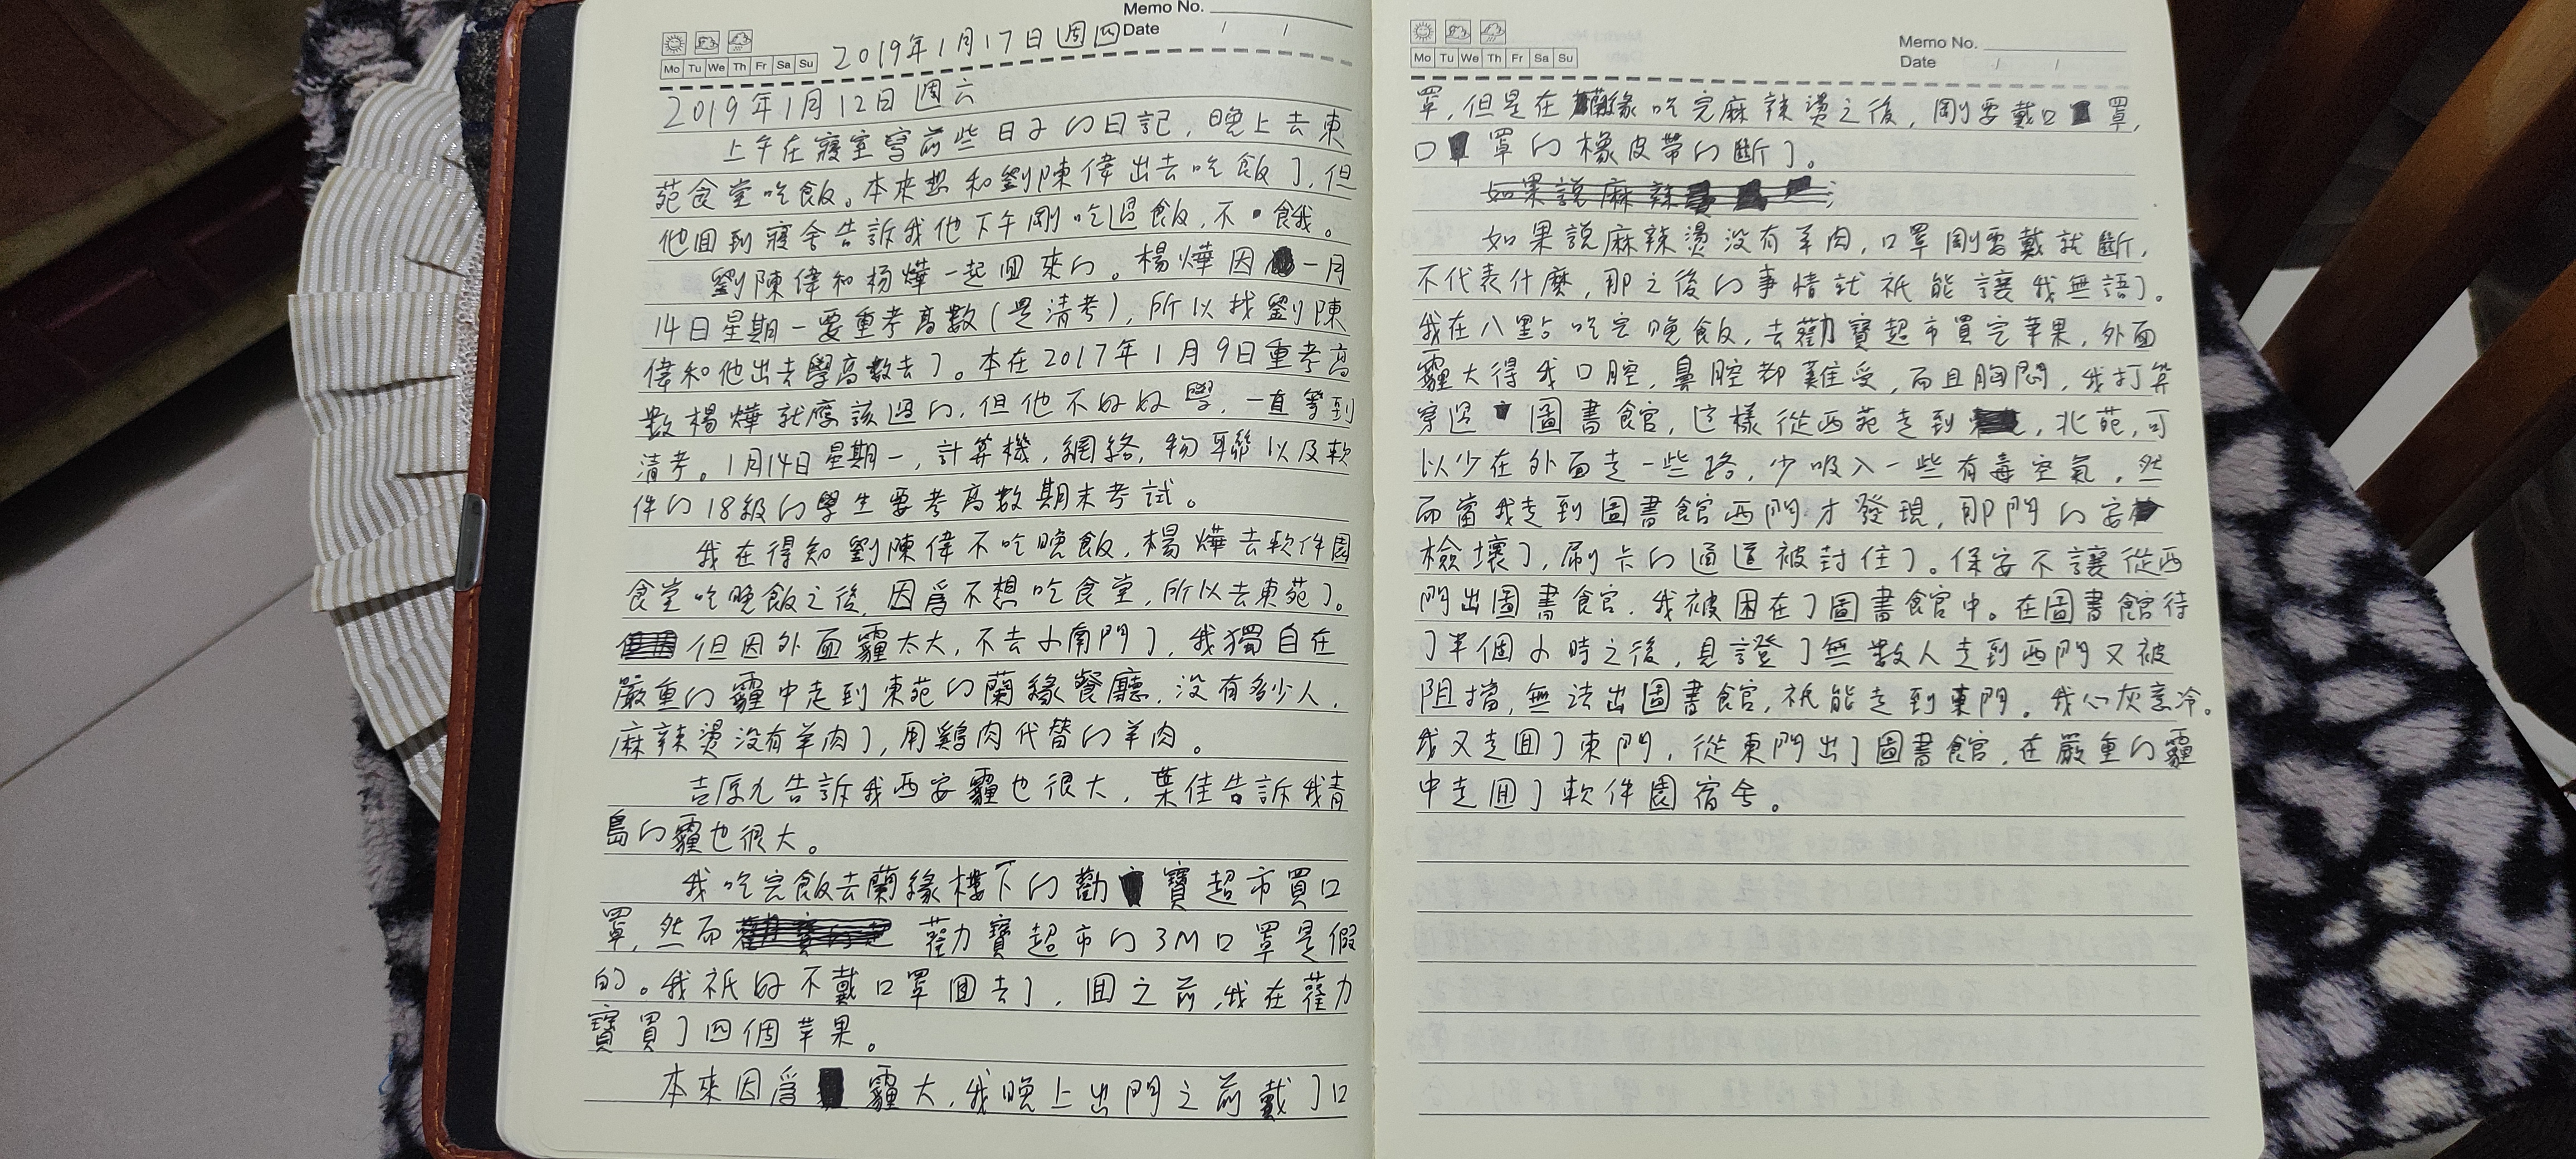 Memo No.
Mo Tu We Th Fr Sa Su
2019年1月17日週四
Date / /
2019年1月12日 週六
上午在寢室寫前些日子的日記，晚上去東
苑食堂吃飯。本來想和劉陳偉出去吃飯了，但
他囬到寢舍告訴我他下午剛吃過飯，不餓。
劉陳偉和杨燁一起囬來的。楊燁因一月
14日星期一要重考高數(是清考)，所以找劉陳
偉和他出去學高數去了。本在2017年1月9日重考高
數楊燁就應該過的，但他不好好學，一直等到
清考。1月14日星期一，計算機，網絡，物聯以及軟
件的18級的學生要考高數期末考試。
我在得知劉陳偉不吃晚飯，楊燁去軟件園
食堂吃晚飯之後，因爲不想吃食堂，所以去東苑了。
但因外面霾太大，不去小南門了，我獨自在
嚴重的霾中走到東苑的蘭緣餐廳，没有多少人，
麻辣燙没有羊肉了，用鷄肉代替的羊肉。
吉厚九告訴我西安霾也很大，葉佳告訴我青
島的霾也很大。
我吃完飯去蘭緣樓下的勸寶超市買口
罩，然而勸寶超市的3M口罩是假
的。我祇好不戴口罩囬去了，囬之前，我在勸
寶買了四個苹果。
本來因爲霾大，我晚上出門之前戴了口
Mo Tu We Th Fr Sa Su
Memo No.
Date / /
罩，但是在蘭緣吃完麻辣燙之後，剛要戴口罩，
口罩的橡皮帶的斷了。
如果説麻辣
如果説麻辣燙没有羊肉，口罩剛要戴就斷，
不代表什麼，那之後的事情就祇能讓我無語了。
我在八點吃完晚飯，去勸寶超市買完苹果，外面
霾大得我口腔，鼻腔都難受，而且胸悶，我打算
穿過圖書館，這樣從西苑走到北苑，可
以少在外面走一些路，少吸入一些有毒空氣，然
而當我走到圖書館西門才發現，那門的安
檢壞了，刷卡的通道被封住了。保安不讓從西
門出圖書館，我被困在了圖書館中。在圖書館待
了半個小時之後，見證了無數人走到西門又被
阻擋，無法出圖書館，祇能走到東門。我心灰意冷。
我又走囬了東門，從東門出了圖書館，在嚴重的霾
中走囬了軟件園宿舍。